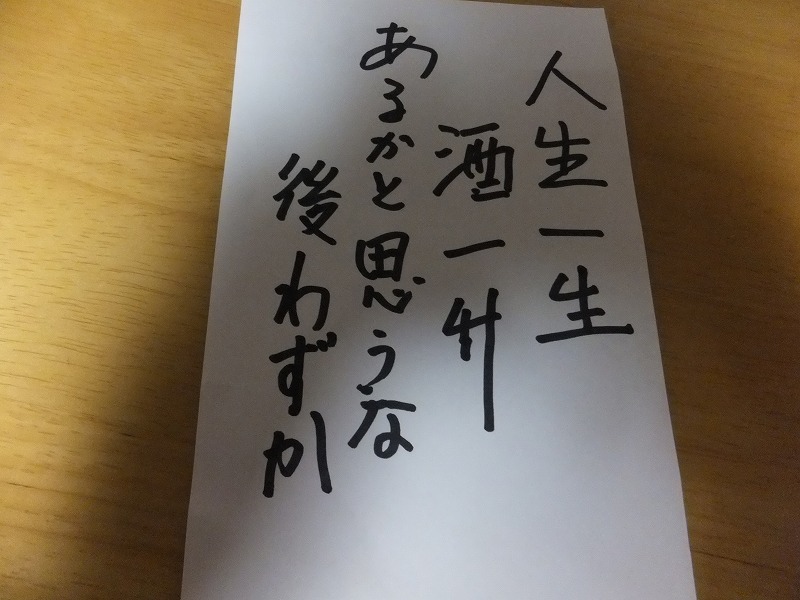 人生一生
酒一升
あるかと思うな
後わずか